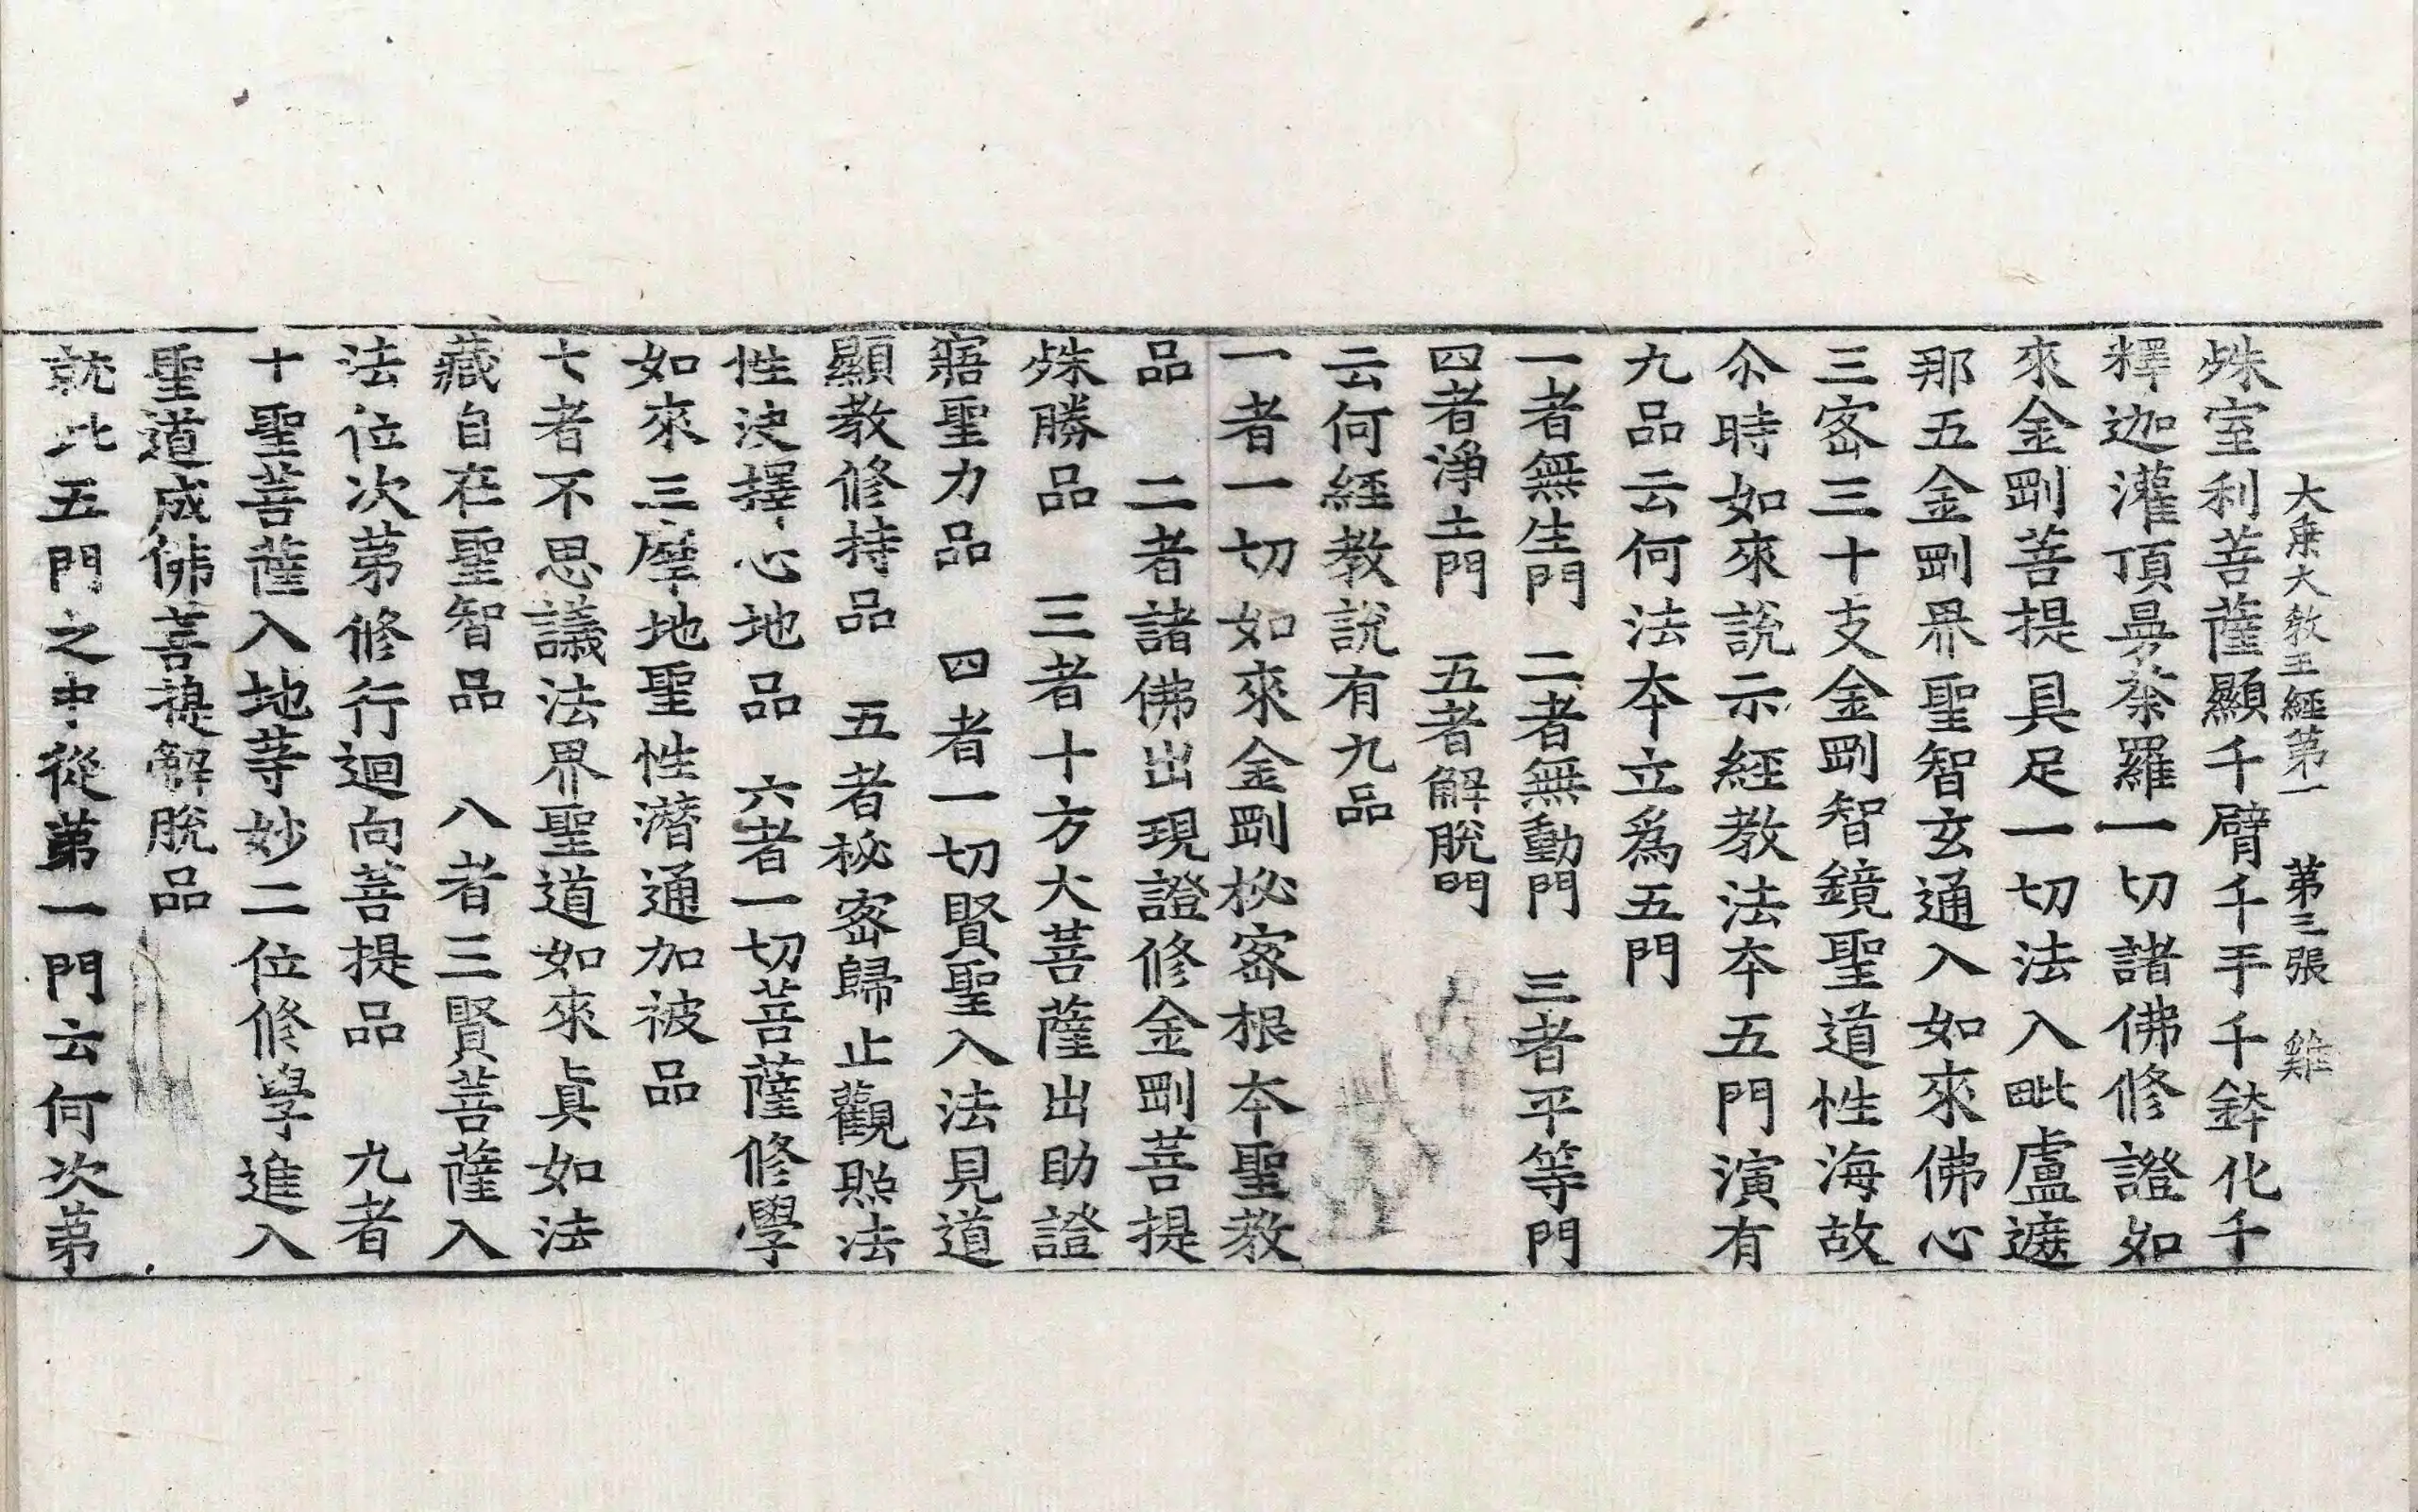 大乗大教王經第一 第三張 雞
殊室利菩薩顯千臂千手千鉢化千
釋迦灌頂曼荼羅一切諸佛修證如
來金剛菩提具足一切法入毗盧遮
那五金剛界聖智玄通入如來佛心
三密三十支金剛智鏡聖道性海故
尒時如來說示經教法本五門演有
九品云何法本立爲五門
一者無生門 二者無動門 三者平等門
四者淨土門 五者解脫門
云何經教說有九品
一者一切如來金剛秘密根本聖教
品 二者諸佛出現證修金剛菩提
殊勝品 三者十方大菩薩出助證
寤聖力品 四者一切賢聖入法見道
顯教修持品 五者秘密歸止觀照法
性決擇心地品 六者一切菩薩修學
如來三摩地聖性潛通加被品
七者不思議法界聖道如來真如法
藏自在聖智品 八者三賢菩薩入
法位次第修行迴向菩提品 九者
十聖菩薩入地等妙二位修學進入
聖道成佛菩提解脫品
就此五門之中從第一門云何次第